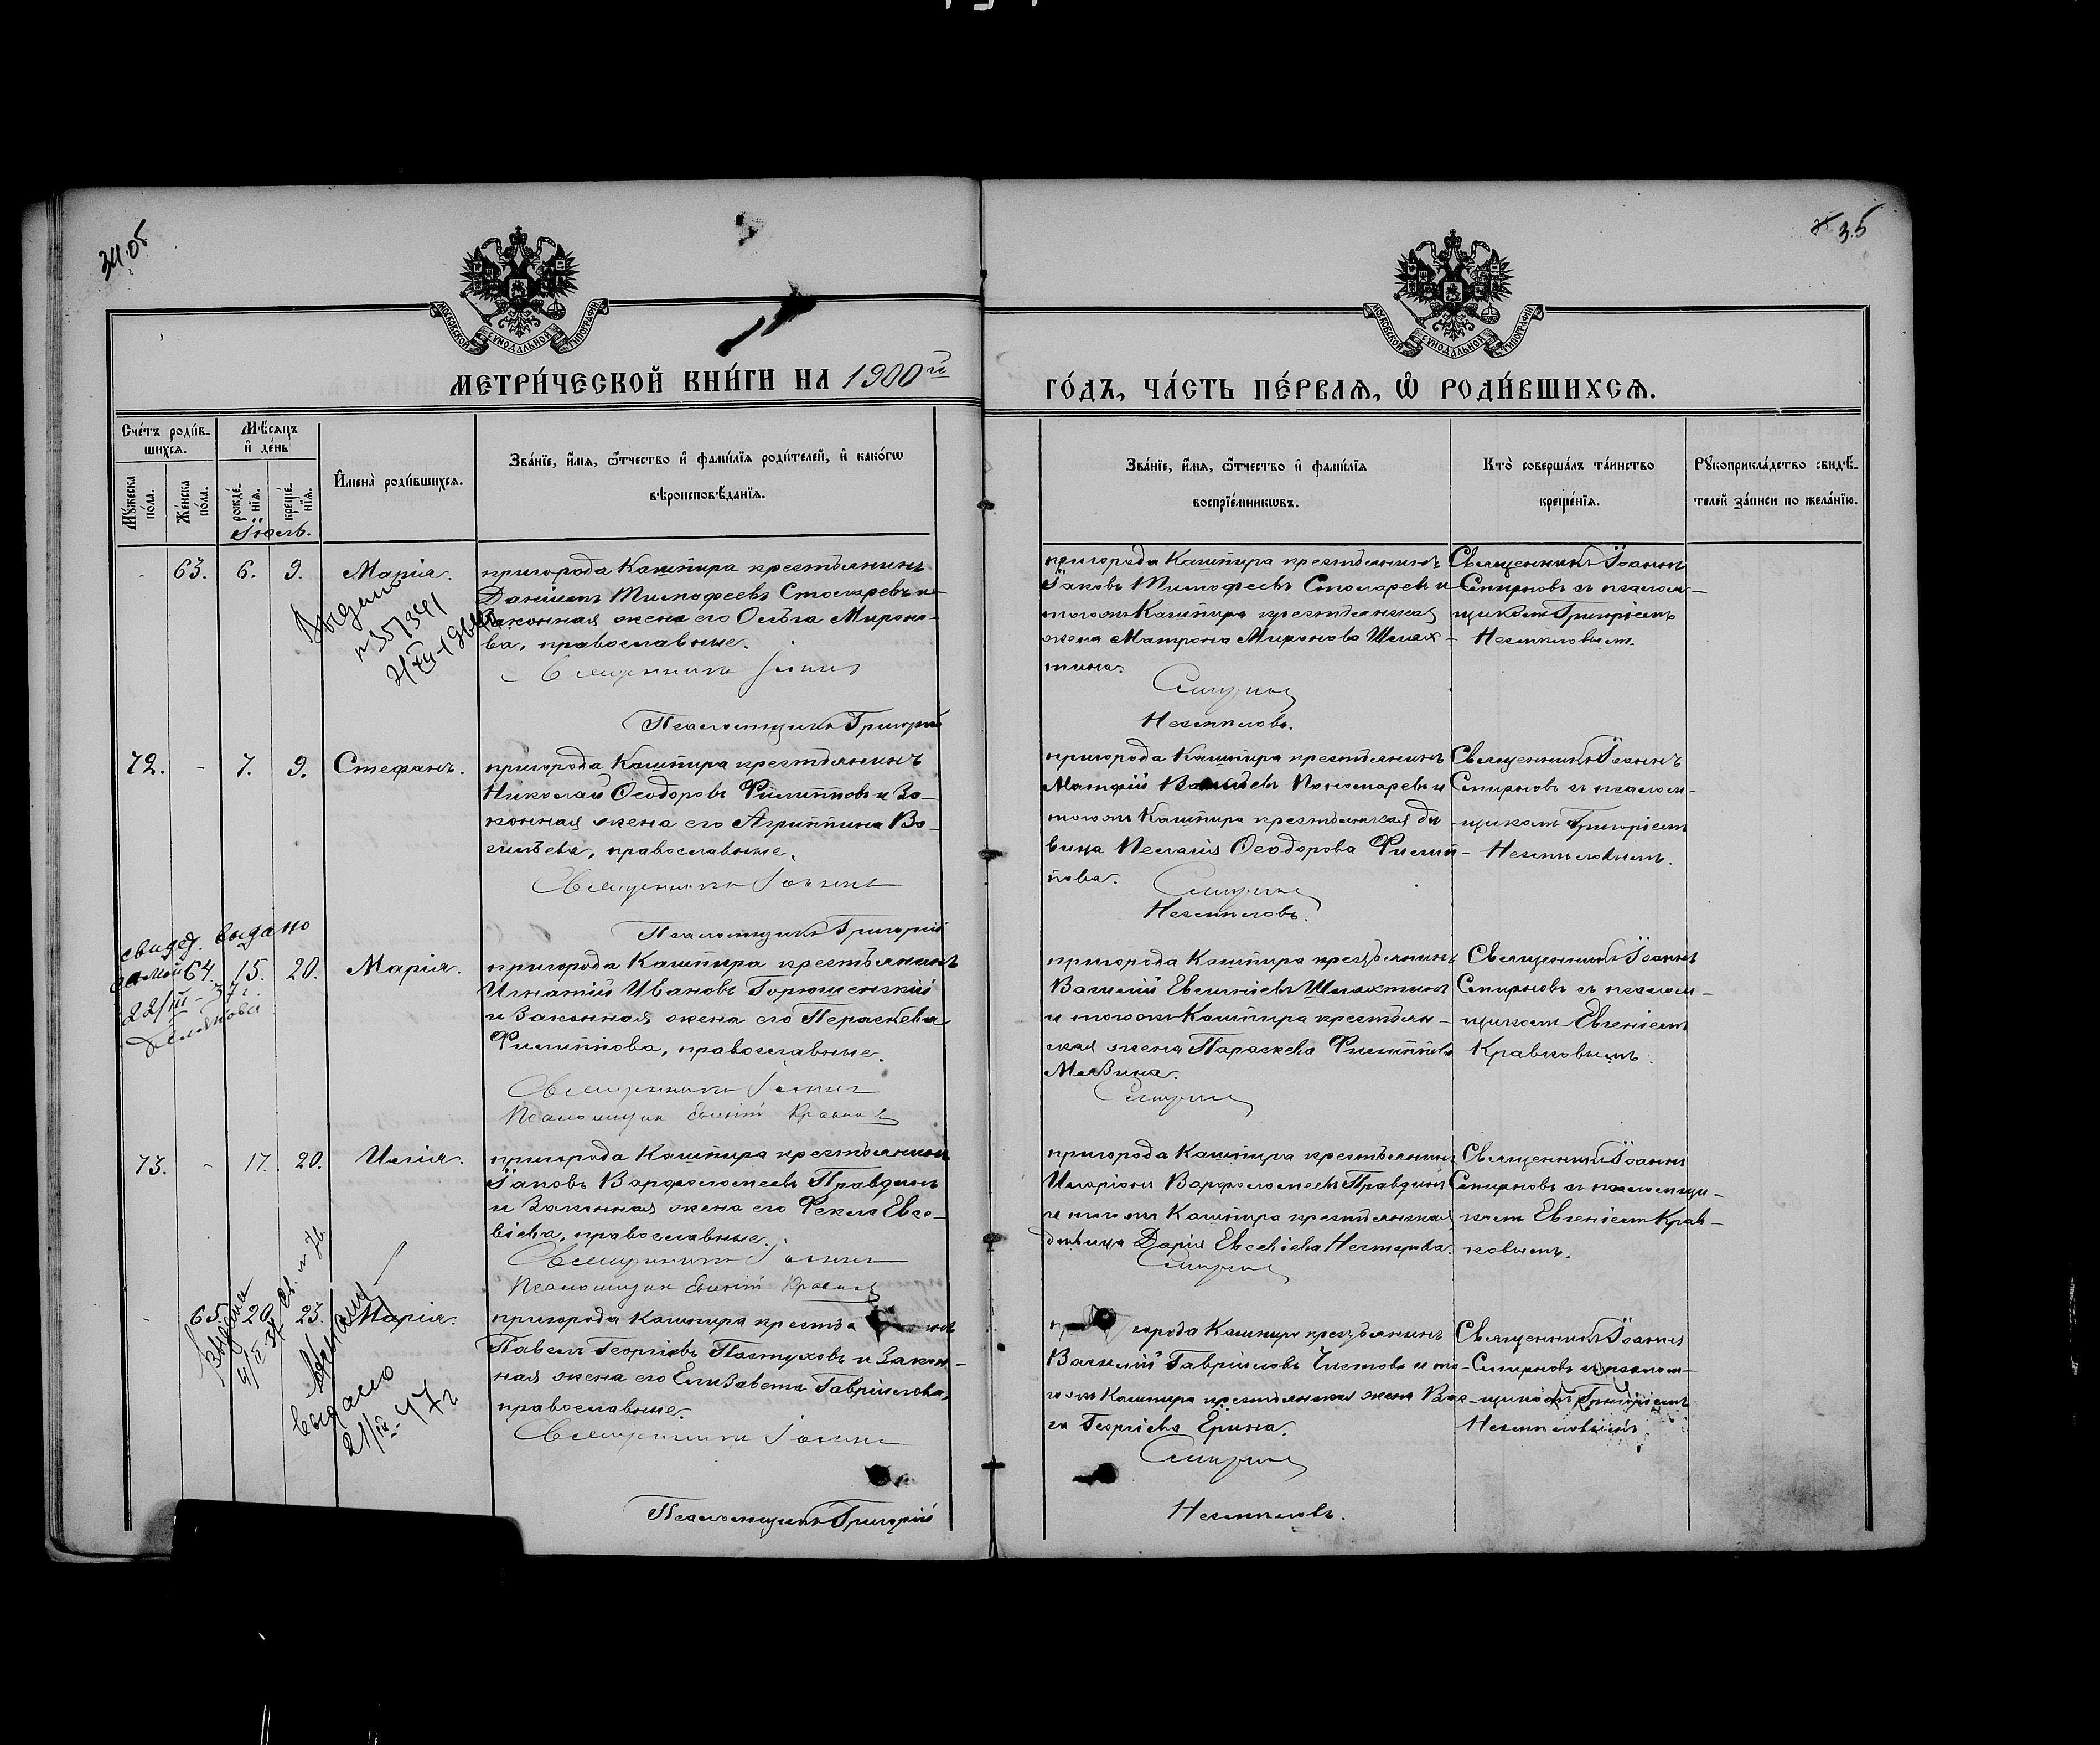 34 об
35
МОСКОВСКОЙ СѴНОДАЛЬНОЙ ТИПОГРАФІИ
МОСКОВСКОЙ СѴНОДАЛЬНОЙ ТИПОГРАФІИ
МЕТРИ́ЧЕСКОЙ КНИ́ГИ НА 1900й
ГО́ДЪ, ЧА́СТЬ ПЕ́РВАѦ, Ѡ РОДИ́ВШИХСѦ.
Сче́тъ роди́в-
шихся.
Мѣ́сяцъ
и де́нь
Мꙋ́жеска по́ла.
Же́нска по́ла.
рожде́-
нїя.
креще́-
нїя.
Имена̀ роди́вшихся.
Зва́нїе, и́мя, ѻ́тчество и фами́лїя роди́телей, и како́гѡ
вѣроисповѣ́данїя.
Зва́нїе, и́мя, ѻ́тчество и фами́лїя
воспрїе́мникѡвъ.
Кто̀ соверша́лъ та́инство
креще́нїя.
Рꙋкоприкла́дство свидѣ́-
телей за́писи по жела́нїю.
Іюль.
63. 6. 9. Марія.
пригорода Кашпира крестьянинъ
Даніилъ Тимофеевъ Столяревъ и
законная жена его Ольга Мироно-
ва, православные.
Священникъ Іоаннъ
Псаломщикъ Григорій
пригорода Кашпира крестьянинъ
Іаковъ Тимофеевъ Столяревъ и
тогожъ Кашпира крестьянская
жена Матрона Миронова Шлях-
тина.
Смирнов
Неемиловъ.
Священникъ Іоаннъ
Смирновъ съ псалом-
щикомъ Григоріемъ
Выдано
72. - 7. 9. Стефанъ.
пригорода Кашпира крестьянинъ
Николай Ѳеодоровъ Филипповъ и за-
конная жена его Агриппина Ва-
сильева, православные.
Священникъ Іоаннъ
Псаломщикъ Григорій
пригорода Кашпира крестьянинъ
Матфій Пономаревъ и
тогожъ Кашпира крестьянская дѣ
вица Пелагія Ѳеодорова Филип-
пова.
Смирнов
Священникъ Іоаннъ
Смирновъ съ псалом-
щикомъ Григоріемъ
свидет. выдано
22/III-37г.
64. 15. 20. Марія.
пригорода Кашпира крестьянинъ
Игнатій Ивановъ Горюшенскій
и законная жена его Параскева
Филиппова, православные.
Священникъ Іоаннъ
Псаломщик Евгеній Кравков
пригорода Кашпира крестьянинъ
Василій Шляхтинъ
и тогожъ Кашпира крестьян-
ская жена Параскева Филиппова
Мазина.
Смирнов
Священникъ Іоаннъ
Смирновъ съ псалом-
щикомъ Евгеніемъ
Кравковымъ.
73. - 17. 20. Илія.
пригорода Кашпира крестьянинъ
Іаковъ Варфоломеевъ Правдинъ
и законная жена его Фекла Евсе-
віева, православные.
Священникъ Іоаннъ
Псаломщик Евгеній Кравков
пригорода Кашпира крестьянинъ
Иларіонъ Варфоломеевъ Правдинъ
и тогожъ Кашпира крестьянская
дѣвица Дарія Евсевіева Нестерова.
Смирнов
Священникъ Іоаннъ
Смирновъ съ псаломщи-
комъ Евгеніемъ Крав-
ковымъ.
- 65. 20. 23. Марія.
пригорода Кашпира
Павелъ Георгіевъ Пастуховъ и закон-
ная жена его Елизавета Гавріилова,
православные.
Священникъ Іоаннъ
Псаломщикъ Григорій
города Кашпира крестьянинъ
Василій Гавріиловъ Чистовъ и то-
гожъ Кашпира крестьянская жена Вас-
са Георгіева Ерина.
Смирнов
Священникъ Іоаннъ
Смирновъ съ псалом-
щикомъ Григоріемъ
Выдано
21/IV-47г